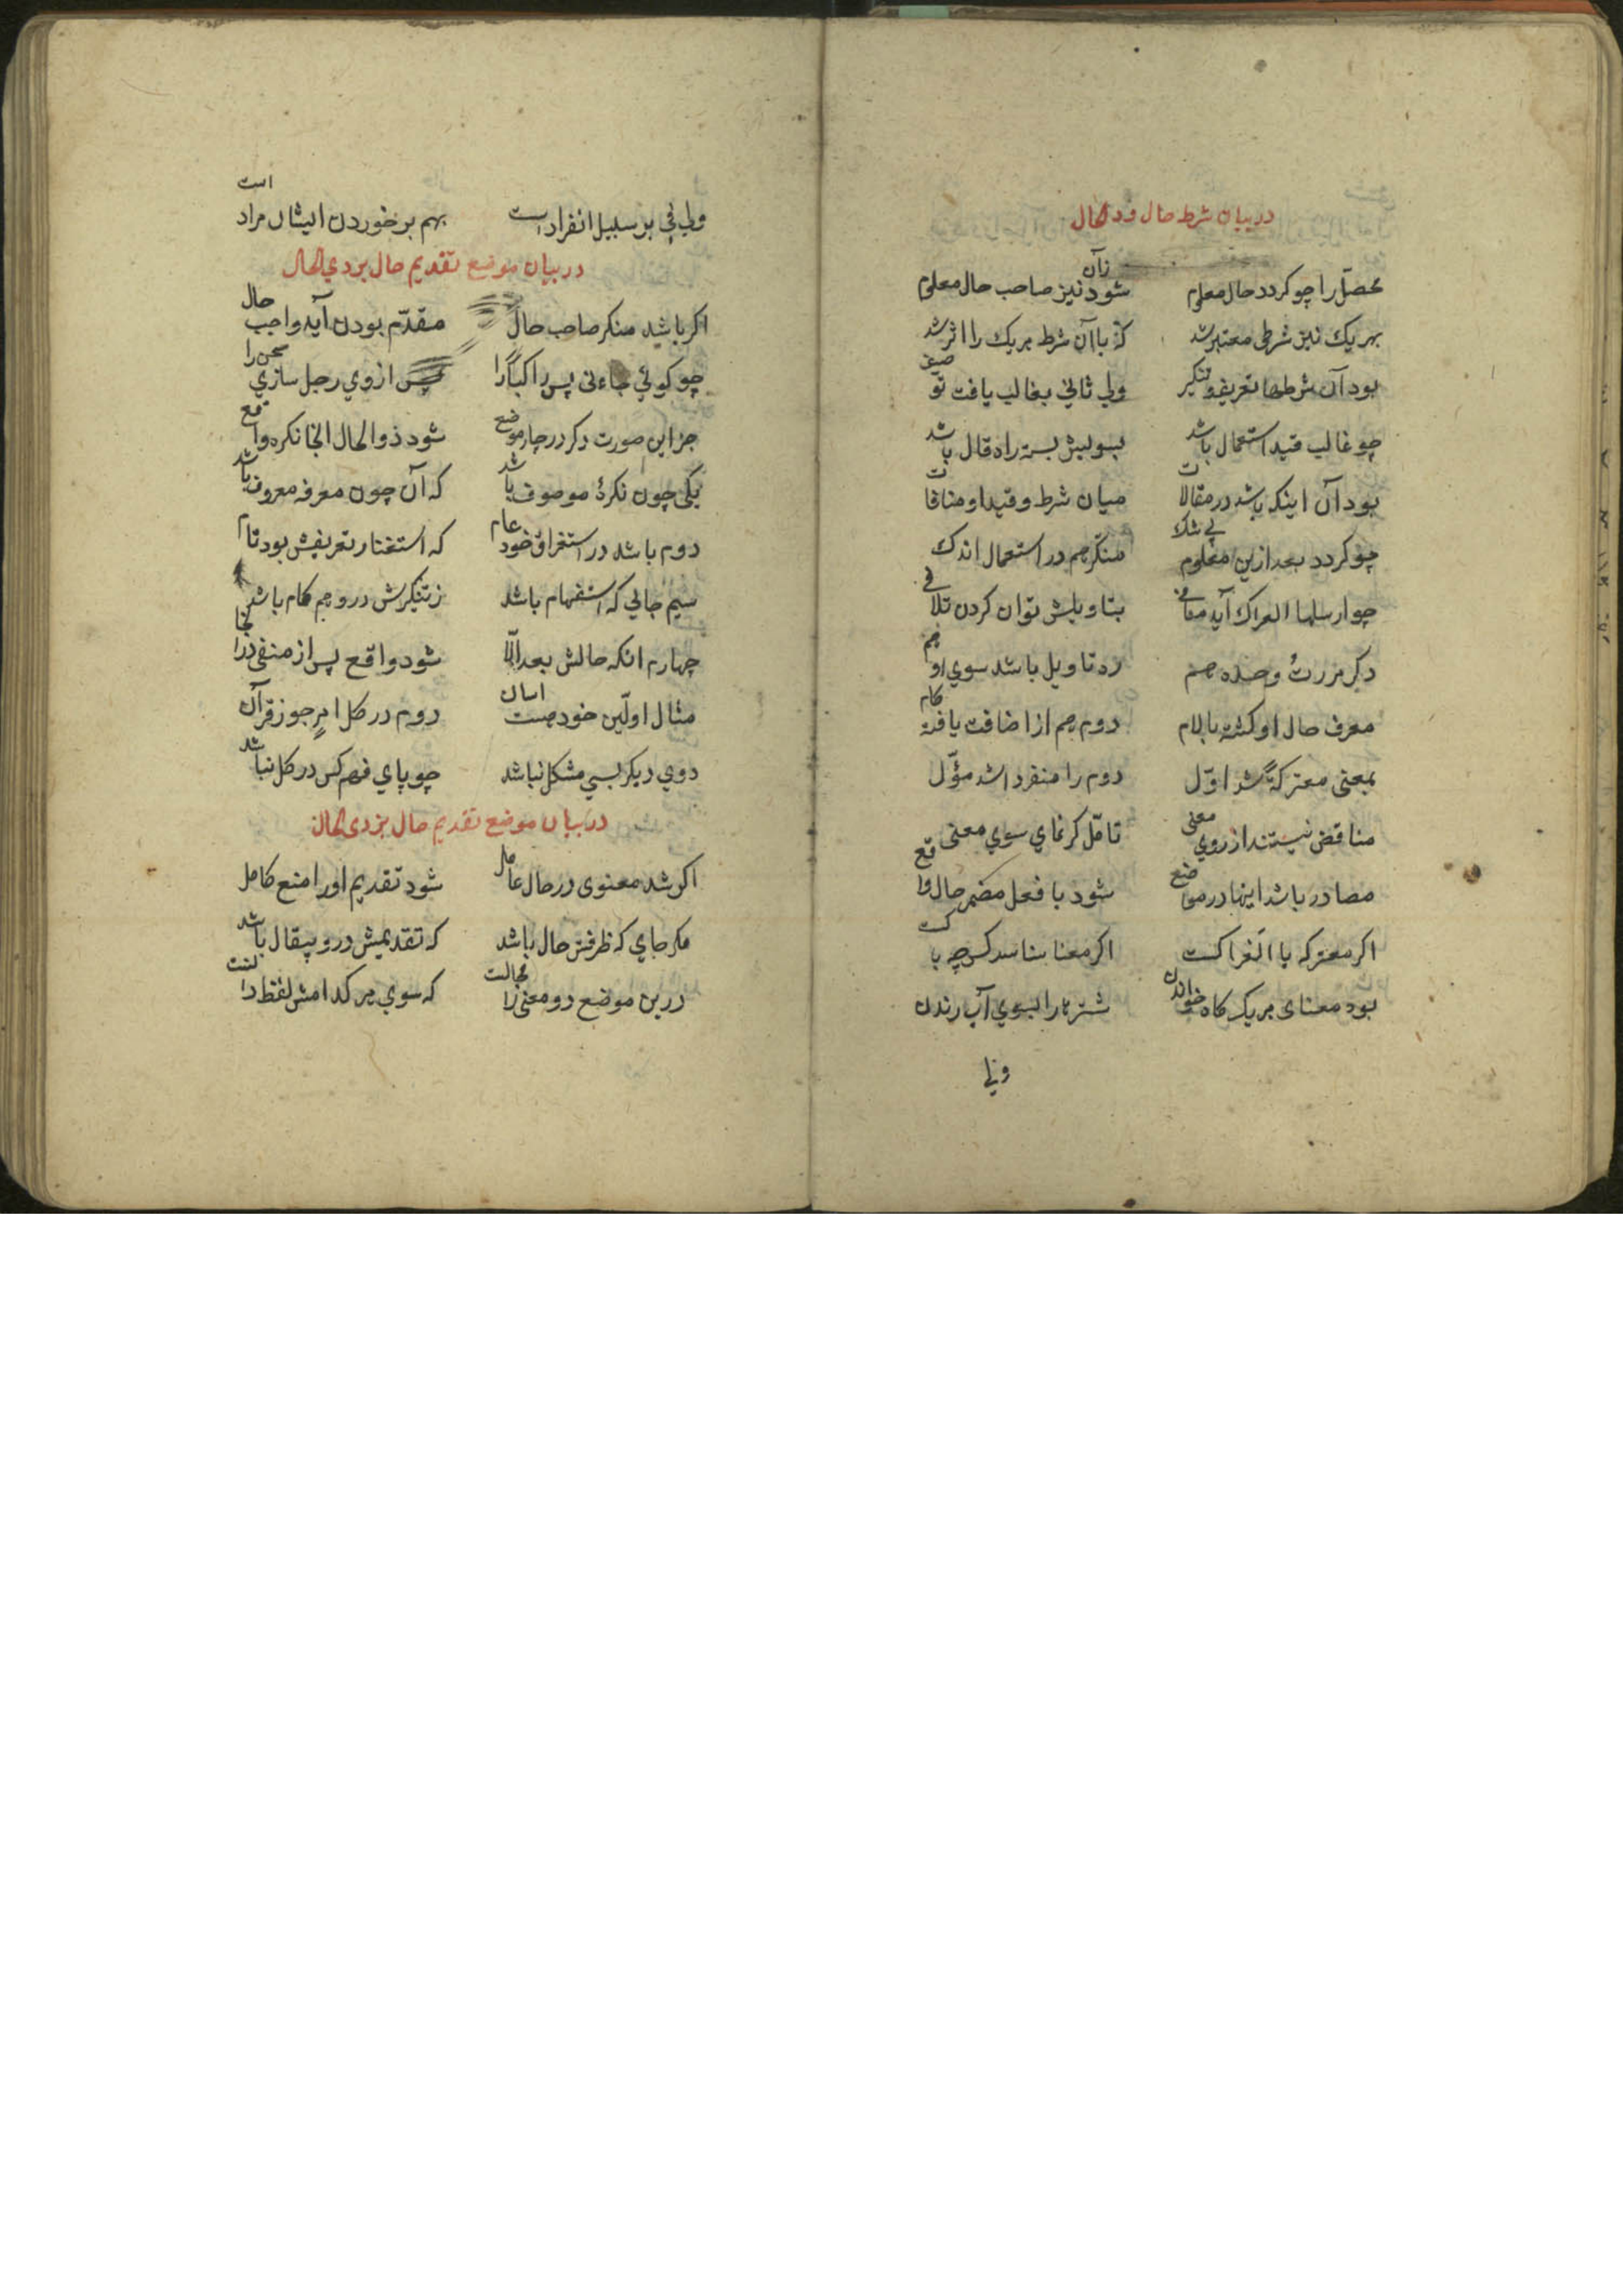 در بیان شرط حال و ذی الحال
محصّل را چو کردد حال معلوم شود زآن نیز صاحب حال معلوم
بهر یک نیز شرطی معتبر شد که با آن شرط هر یک را اثر شد
بود آن شرطها تعریف و تنکیر ولی ثانی بغالب یافت تو
چو غالب قید استعمال باشد بسولیش بسته راه قال باشد
بود آن اینکه باشد در مقالات میان شرط و قید او منافات
چو کردد بعد ازین معلوم بی شک منکّر هم در استعمال اندک
چو ارسلها العراک آید منافی بتاویلش توان کردن تلافی
دکر مررت وحده هم ره تاویل باشد سوی او هم
معرف حال او کشته با لام دوم هم از اضافت یافته کام
بمعنی معترکةً شد اوّل دوم را منفرد اشد مؤّل
مناقض نیستند از روی معنی تامّل کر نمای سوی معنی
مصادر باشد اینها در مواضع شود با فعل مضمر حال واقع
اکر معترکه یا الغراکست اکر معنا شناسد کس چه باکست
بود معنای هر یک کاه خواندن شترها را بسوی آب رندن
ولی
ولی فی بر سبیل انفراد است بهم بر خوردن ایشان مراد است
در بیان موضع تقدیم حال بر ذی الحال
اکر باشد منکر صاحب حال مقدّم بودن آید واجب حال
چو کوئی جاءنی پس راکبًا را پس از وی رجل سازی سخن را
جز این صورت دکر در چار موضع شود ذوالحال انجا نکره واقع
یکی چون نکرهٔ موصوف باشد که آن چون معرفه معروف باشد
دوم باشد در استغراق خود عام که استغنا ز تعریفش بود تام
سیم حالی که استفهام باشد ز تنکیرش درو هم کام باشد
چهارم انکه حالش بعد الّا شود واقع پس از منفی در انجا
مثال اولّین خود هست اسان دوم در کل امرٍ جو ز قرآن
دوی دیکر بسی مشکل نباشد چو پای فهم کس در کل نباشد
در بیان موضع تقدیم حال بر ذی الحال
اکر شد معنوی در حال عامل شود تقدیم او را منع کامل
مکر جای که ظرفش حال باشد که تقدیمش درو بیقال باشد
درین موضع دو معنی را مجالست که سوی هر کدامش لفظ را